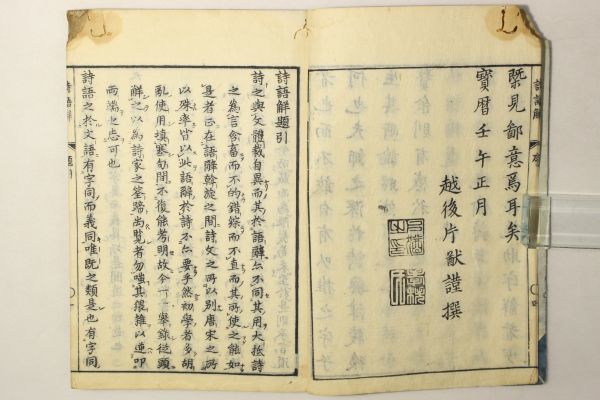 槩見鄙意焉耳矣
寳暦壬午正月
越後片猷謹撰
詩語解題引
詩之與文體裁自異而其於語辭亦不同其用大抵詩
之為言含畜而不的錯綜而不直而其所使之能如
是者正在語辭斡旋之間詩文之所以別唐宋之所
以殊率皆以此語辭於詩不亦要乎然初學者多胡
亂使用填塞句間不復能考明故今一一舉錄從頭
解之以為詩家之筌蹄尚覧者勿嗤其猥雜以連叩
両端之志可也
詩語之於文語有字同而義同唯既之類是也有字同
詩語解
題引
詩語解
序